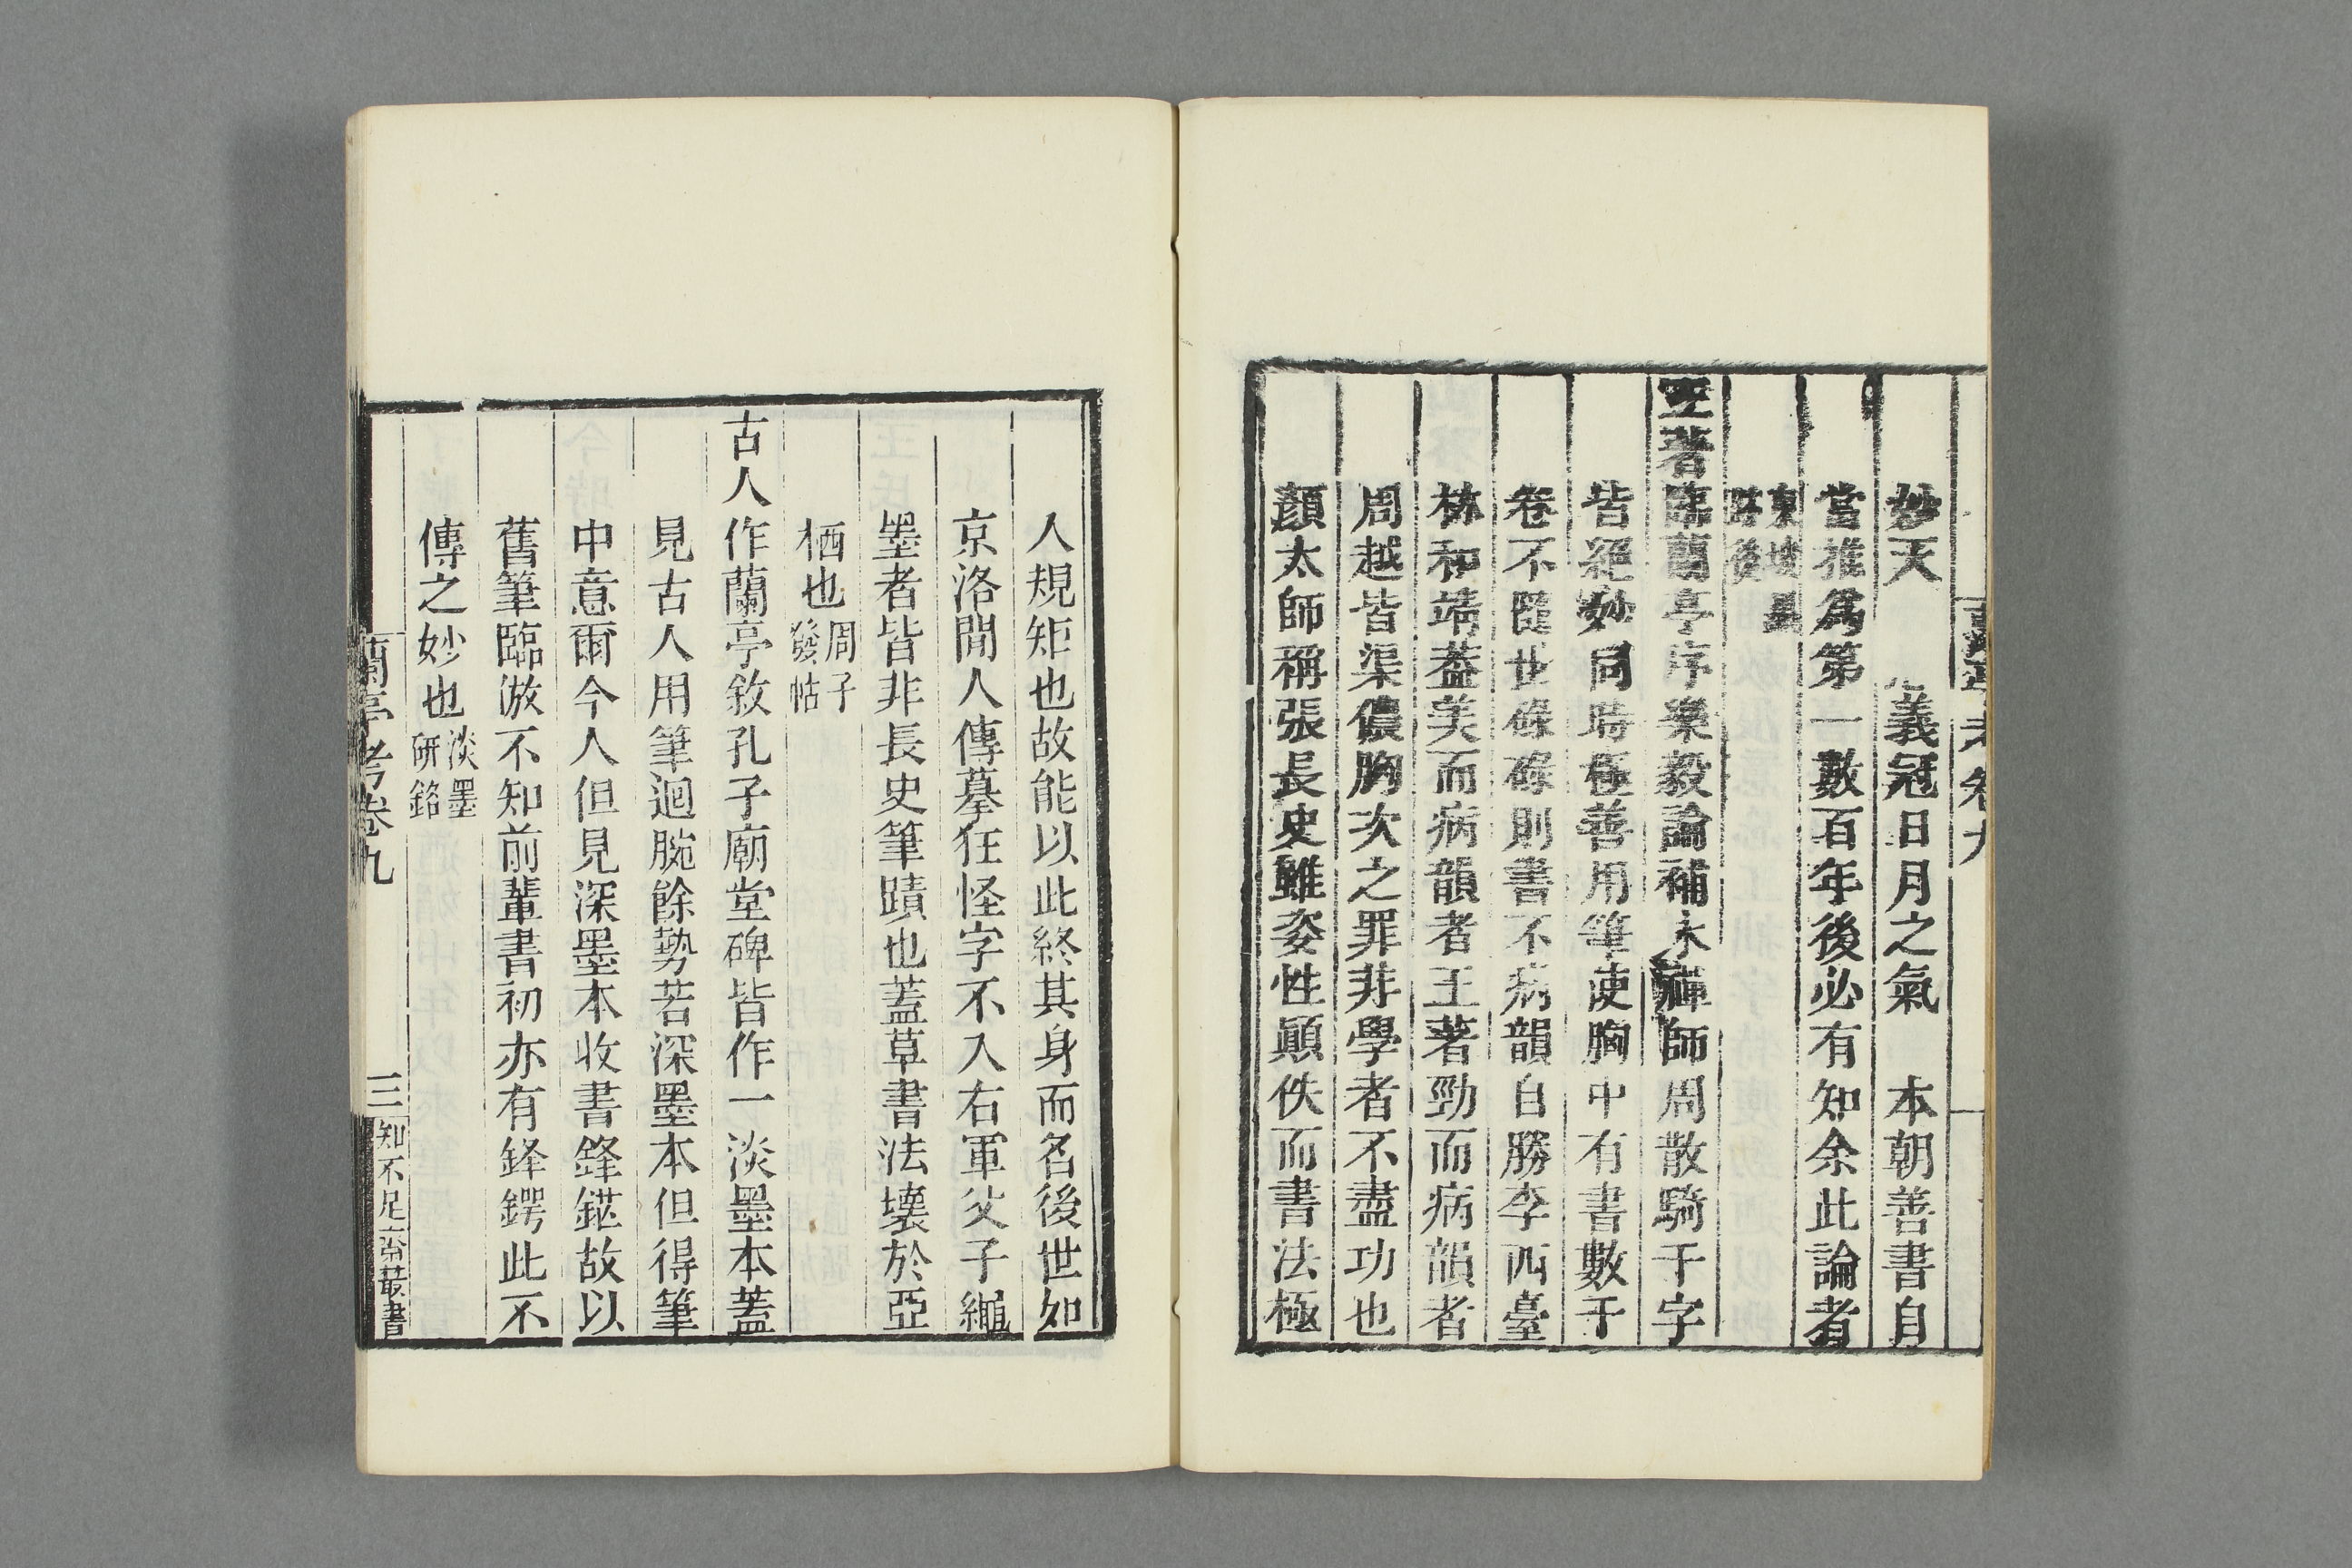 妙天 義冠日月之氣 本朝善書自
當推爲第一數百年後必有知余此論者
東坡墨
跡後
王著臨蘭亭序樂毅論補永禪師周散騎千字
皆絕妙同時極善用筆使胸中有書數千
卷不隨世碌碌則書不病韻自勝李西臺
林和靖蓋美而病韻者王著勁而病韻者
周越皆渠儂胸次之罪非學者不盡功也
顏太師稱張長史雖姿性顚佚而書法極
人規矩也故能以此終其身而名後世如
京洛閒人傳摹狂怪字不入右軍父子繩
墨者皆非長史筆蹟也蓋草書法壞於亞
栖也周子
發帖
古人作蘭亭敘孔子廟堂碑皆作一淡墨本蓋
見古人用筆迴腕餘勢若深墨本但得筆
中意爾今人但見深墨本收書鋒鋩故以
舊筆臨倣不知前輩書初亦有鋒鍔此不
傳之妙也淡墨
研銘
蘭亭考卷九
三
知不足齋叢書